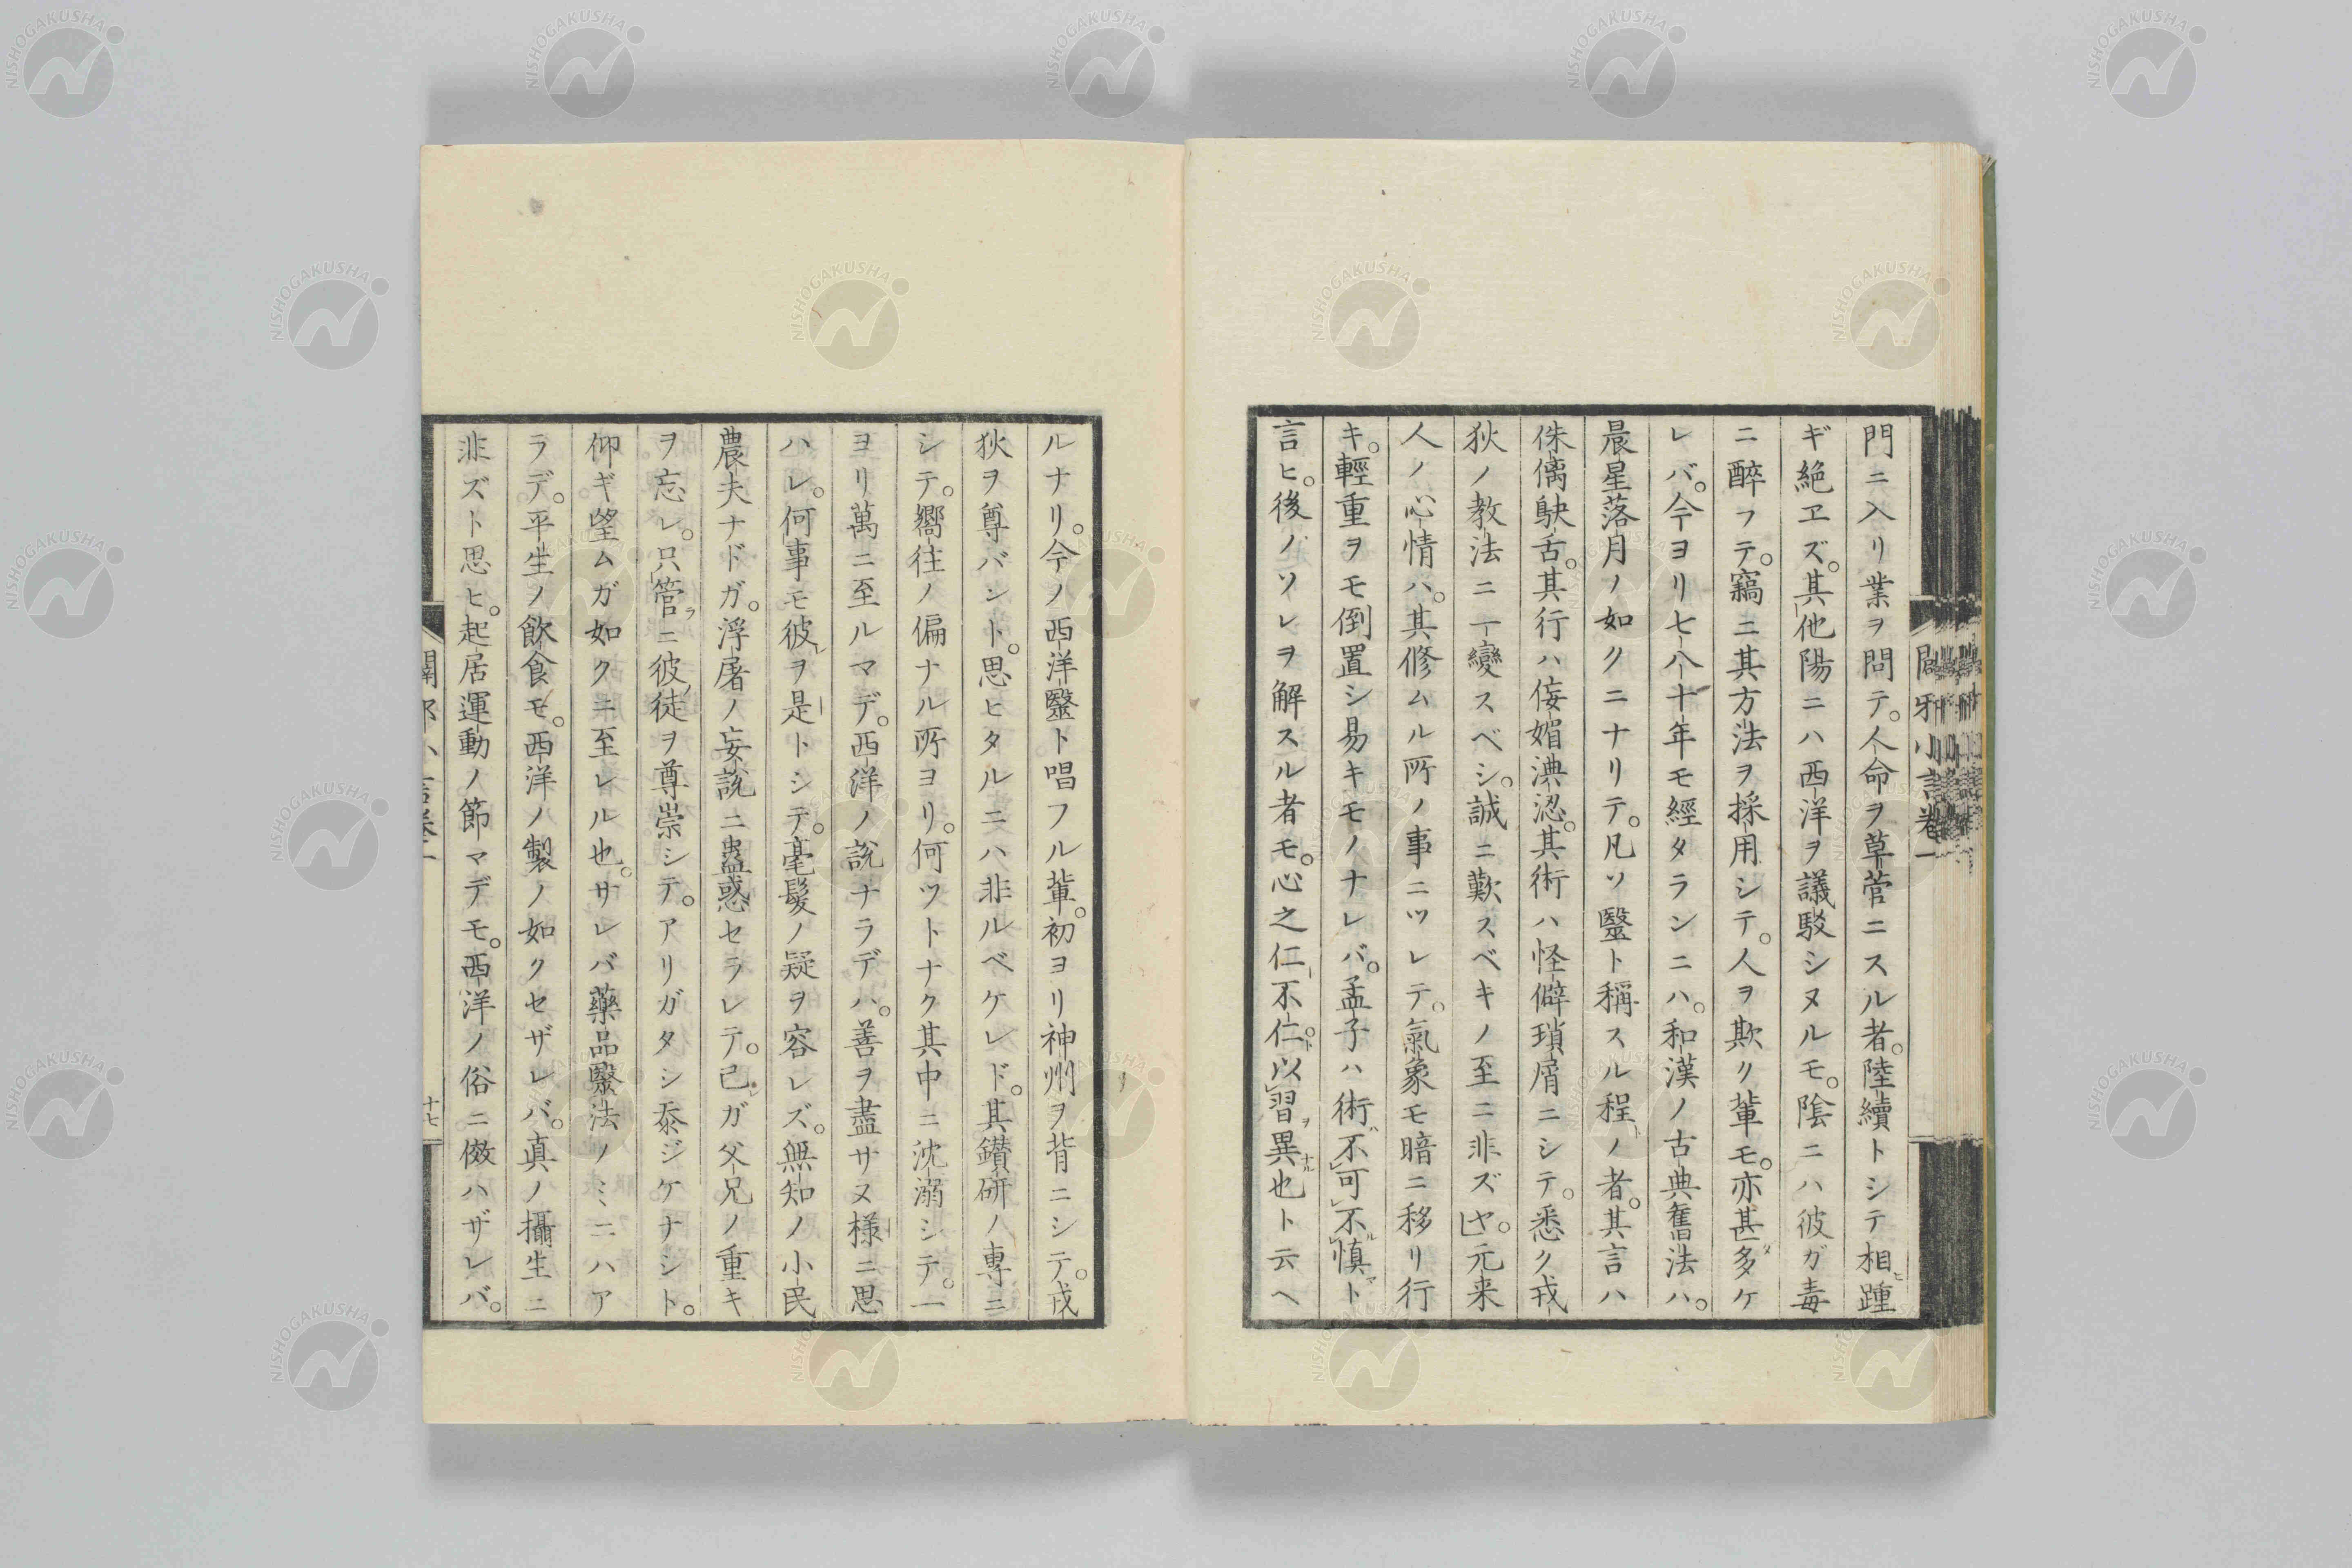 門ニ入リ業ヲ問テ。人命ヲ草菅ニスル者。陸續トシテ相ヒ踵
ギ絕ヱズ。其他陽ニハ西洋ヲ議駁シヌルモ。陰ニハ彼ガ毒
ニ醉フテ。竊ニ其方法ヲ採用シテ。人ヲ欺ク輩モ。亦甚ダ多ケ
レバ。今ヨリ七八十年モ經タランニハ。和漢ノ古典舊法ハ。
晨星落月ノ如クニナリテ。凡ソ毉ト稱スル程ノ者。其言ハ
侏𠌯鴃舌。其行ハ侫媚淟涊。其術ハ怪僻瑣屑ニシテ。悉ク戎
狄ノ教法ニ一變スベシ。誠ニ歎スベキノ至ニ非ズヤ。元来
人ノ心情ハ。其修ムル所ノ事ニツレテ。氣象モ暗ニ移リ行
キ。輕重ヲモ倒置シ易キモノナレバ。孟子ハ術不可不慎ト
言ヒ。後ノソレヲ解スル者モ。心之仁不仁。以習異也ト云ヘ
闢邪小言卷一
ルナリ。今ノ西洋毉ト唱フル輩。初ヨリ神州ヲ背ニシテ。戎
狄ヲ尊バント。思ヒタルニハ非ルベケレド。其鑚研ノ專ニ
シテ。嚮往ノ偏ナル所ヨリ。何ツトナク其中ニ沈溺シテ。一
ヨリ萬ニ至ルマデ。西洋ノ說ナラデハ。善ヲ盡サヌ様ニ思
ハレ。何事モ彼レヲ是トシテ。毫髮ノ疑ヲ容レズ。無知ノ小民
農夫ナドガ。浮屠ノ妄說ニ蠱惑セラレテ。己レガ父兄ノ重キ
ヲ忘レ。只管ラニ彼徒ヲ尊崇シテ。アリガタシ忝ジケナシト。
仰ギ望ムガ如クニ至レル也。サレバ藥品毉法ノミニハア
ラデ。平生ノ飲食モ。西洋ノ製ノ如クセザレバ。真ノ攝生ニ
非ズト思ヒ。起居運動ノ節マデモ。西洋ノ俗ニ倣ハザレバ。
十七